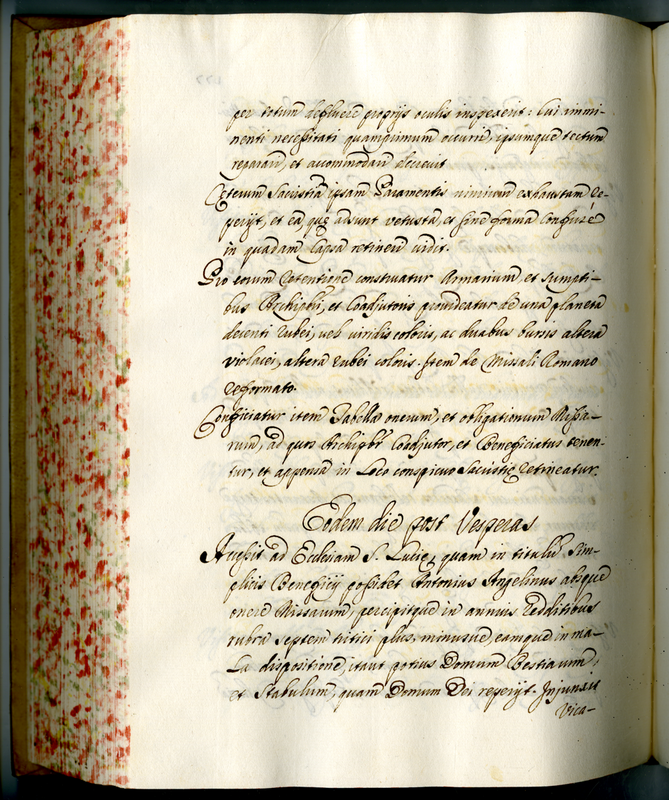 per totum defluere proprijs oculis inspexerit: Cui immi-
nenti necessitati quamprimum occurri, ipsumque tectum
reparari, et accommodari decrevit
Ceterum Sacristia ipsam Paramentis nimium exhaustam re-
perijt, et ea, quę adsunt vetusta, et sine forma confusè
in quadam Capsa retineri vidit.
Pro eorum retentione construatur Armarium, et sumpti-
bus Archipbri, et Coadjutoris provideatur de una planeta
decenti rubei, vel viridis coloris, ac duabus bursis altera
violacei, altera rubei coloris. Item de Missali Romano
reformato.
Conficiatur item Tabella onerum, et obligationum Missa-
rum, ad quas Archipbr Coadjutor, et Beneficiatus tenen-
tur, et appensa in loco conspicuo Sacristię retineatur.
Eodem die post Vesperas
Accessit ad Ecclesiam S. Lucię, quam in titulū Sim-
plicis Beneficij possidet Antonius Angelinus absque
onere Missarum, percipitque in annuis redditibus
rubra septem tritici plus, minusve, eamque in ma-
la dispositione, itaut potius Domum Bestiarum,
et Stabulum, quam Domum Dei reperijt. Injunxit
Vica-